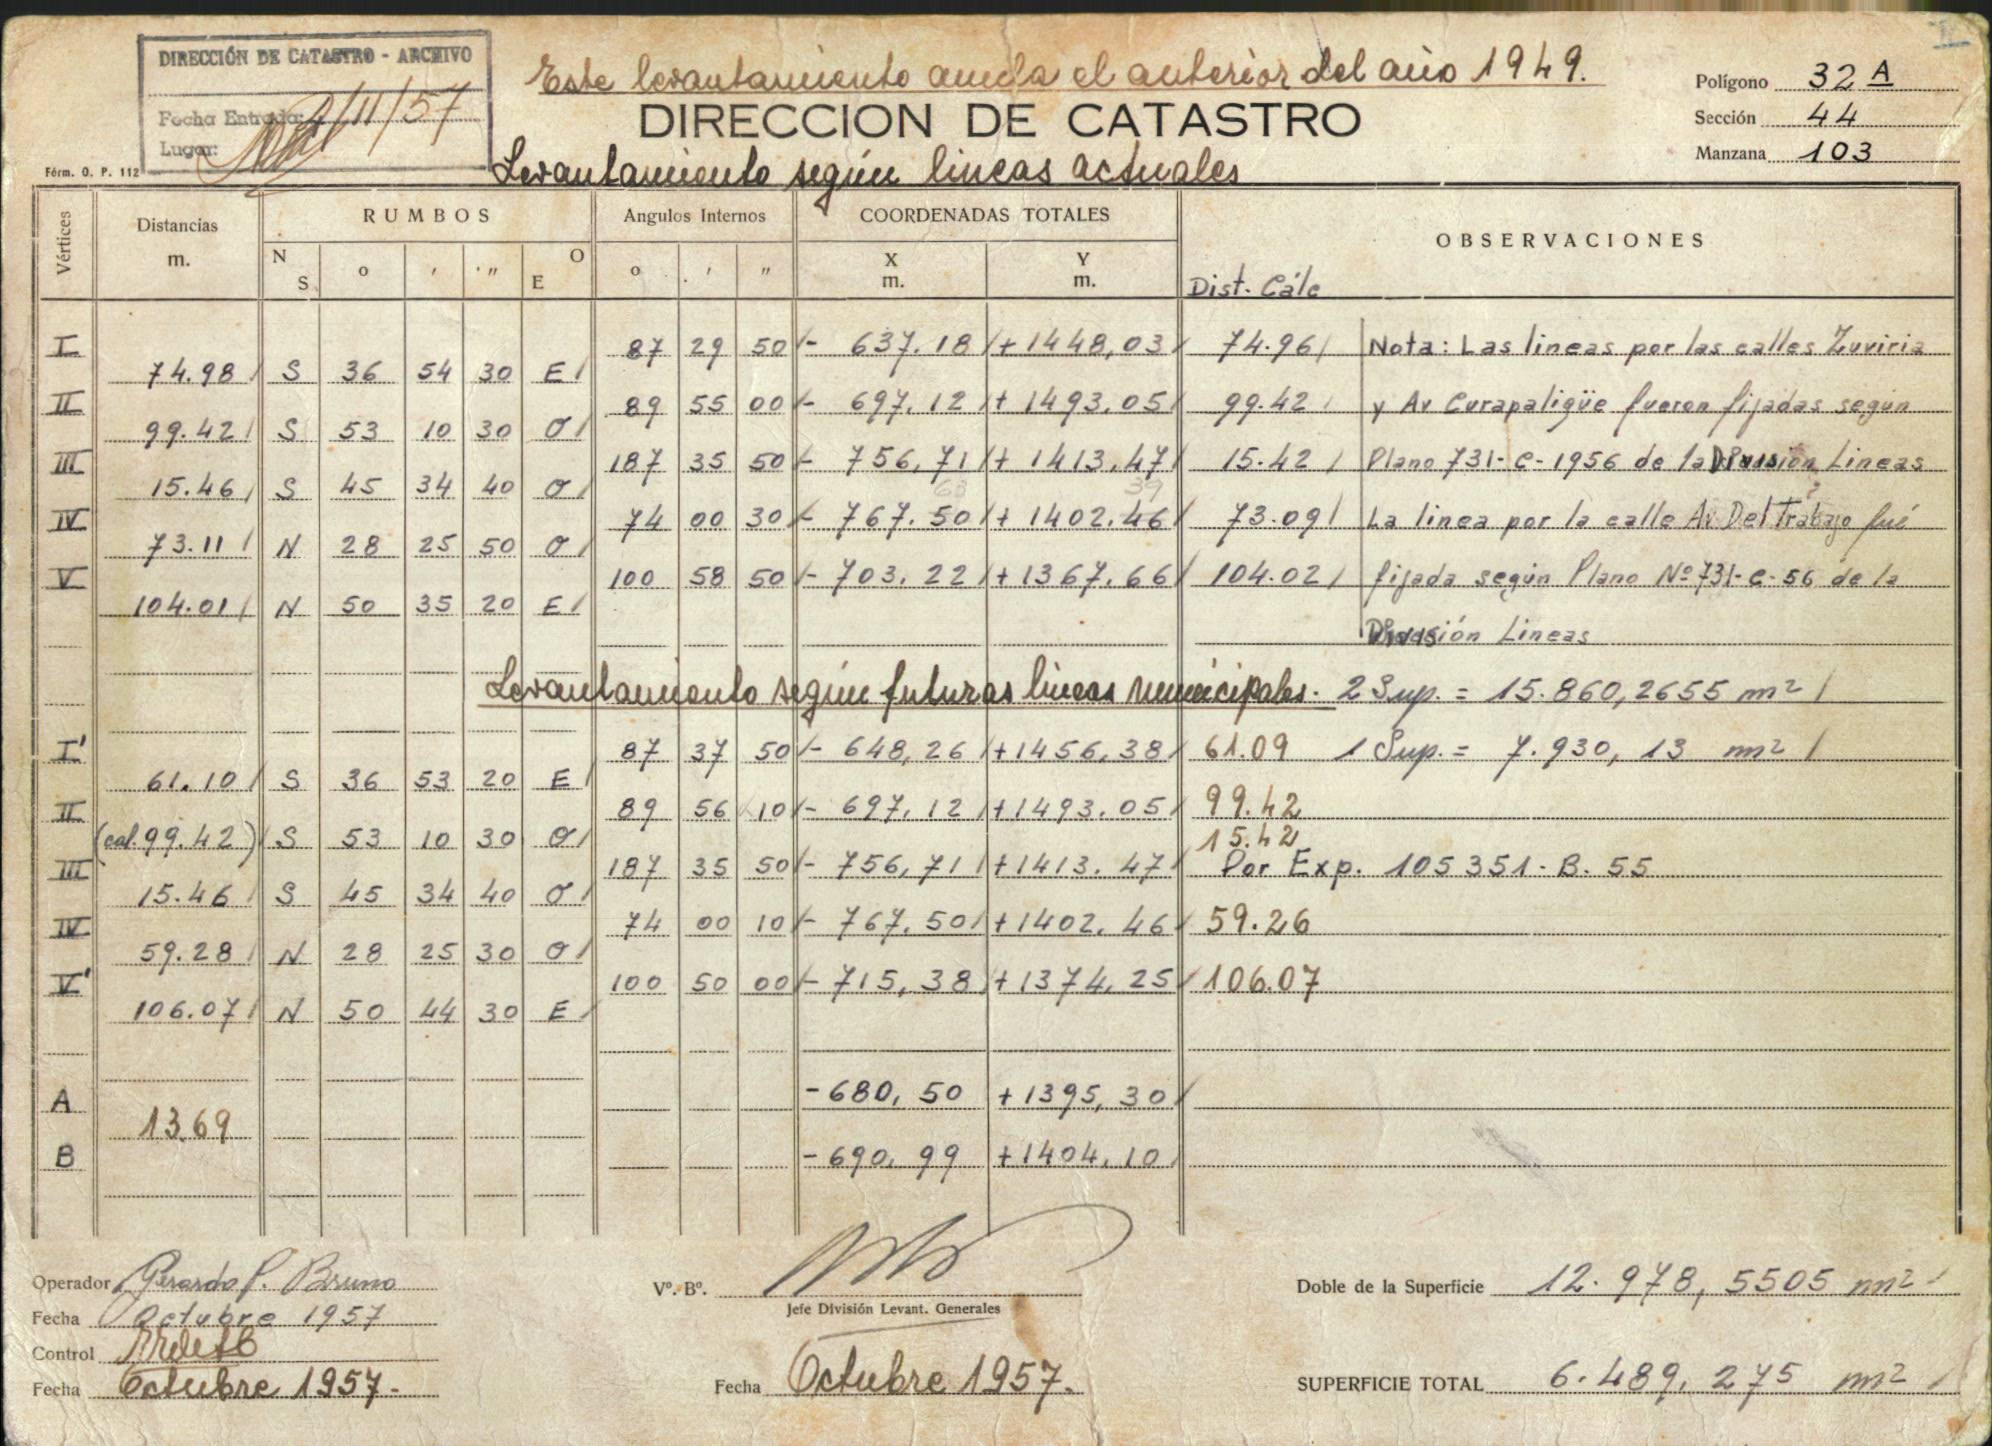 DIRECCIÓN DE CATASTRO - ARCHIVO
Fecha Entrada: /11/57
Lugar:
Fórm. O. P. 112
Este levantamiento anula el anterior del año 1949.
DIRECCION DE CATASTRO
Levantamiento según lineas actuales
Polígono 32 A
Sección 44
Manzana 103
Vértices Distancias m. RUMBOS N S ° ' " O E Angulos Internos ° ' " COORDENADAS TOTALES X m. Y m. OBSERVACIONES
Dist. Cálc
I 87 29 50 - 637.18 + 1448,03 74.96 Nota: Las lineas por las calles Zuviria
74.98 S 36 54 30 E
II 89 55 00 - 697,12 + 1493.05 99.42 y Av Curapaligüe fueron fijadas según
99.42 S 53 10 30 O
III 187 35 50 - 756,71 + 1413.47 15.42 Plano 731-C-1956 de la División Lineas
15.46 S 45 34 40 O 63 39
IV 74 00 30 - 767.50 + 1402.46 73.09 La linea por la calle Av. Del Trabajo fué
73.11 N 28 25 50 O
V 100 58 50 - 703.22 + 1367.66 104.02 fijada según Plano Nº 731-C-56 de la
104.01 N 50 35 20 E
División Lineas
Levantamiento según futuras lineas municipales. 2 Sup. = 15.860,2655 m2
I' 87 37 50 - 648,26 + 1456,38 61.09 1 Sup. = 7.930,13 m2
61.10 S 36 53 20 E
II 89 56 10 - 697,12 + 1493.05 99.42
(cal. 99.42) S 53 10 30 O 15.42
III 187 35 50 - 756,71 + 1413.47 Por Exp. 105351-B.55
15.46 S 45 34 40 O
IV 74 00 10 - 767,50 + 1402.46 59.26
59.28 N 28 25 30 O
V' 100 50 00 - 715,38 + 1374,25 106.07
106.07 N 50 44 30 E
A - 680,50 + 1395,30
13.69
B - 690,99 + 1404,10
Operador Gerardo P. Bruno
Fecha Octubre 1957
Control
Fecha Octubre 1957.
Vº. Bº.
Jefe División Levant. Generales
Fecha Octubre 1957.
Doble de la Superficie 12.978,5505 m2
SUPERFICIE TOTAL 6.489,275 m2